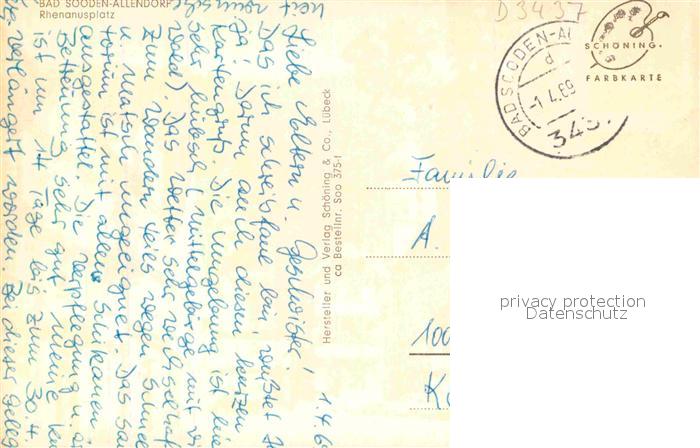 BAD SOODEN-ALLENDORF
Rhenanusplatz
D3437
SCHÖNING.
FARBKARTE
BAD SOODEN-AL
d
-1.4.69
343
Hersteller und Verlag Schöning & Co., Lübeck
ca Bestellnr. Soo 375-1
1.4.6
Liebe Eltern u. Geschwister!
Das ich schreibfaul bin, wußtet
ja! Darum auch diesen kurzen
Kartengruß. Die Umgebung ist hier
sehr hübsch (Mittelgebirge mit vi
Wald). Das Wetter sehr wechselhaft
zum Wandern teils wegen Schnee
u. Matsch ungeeignet. Das Sa
torium ist mit allen Schikanen
ausgestattet. Die Verpflegung u.
Betreuung sehr gut. Meine
ist um 14 Tage bis zum 30.4
verlängert worden. Bei dieser Geleg
Familie
A.
100
privacy protection
Datenschutz